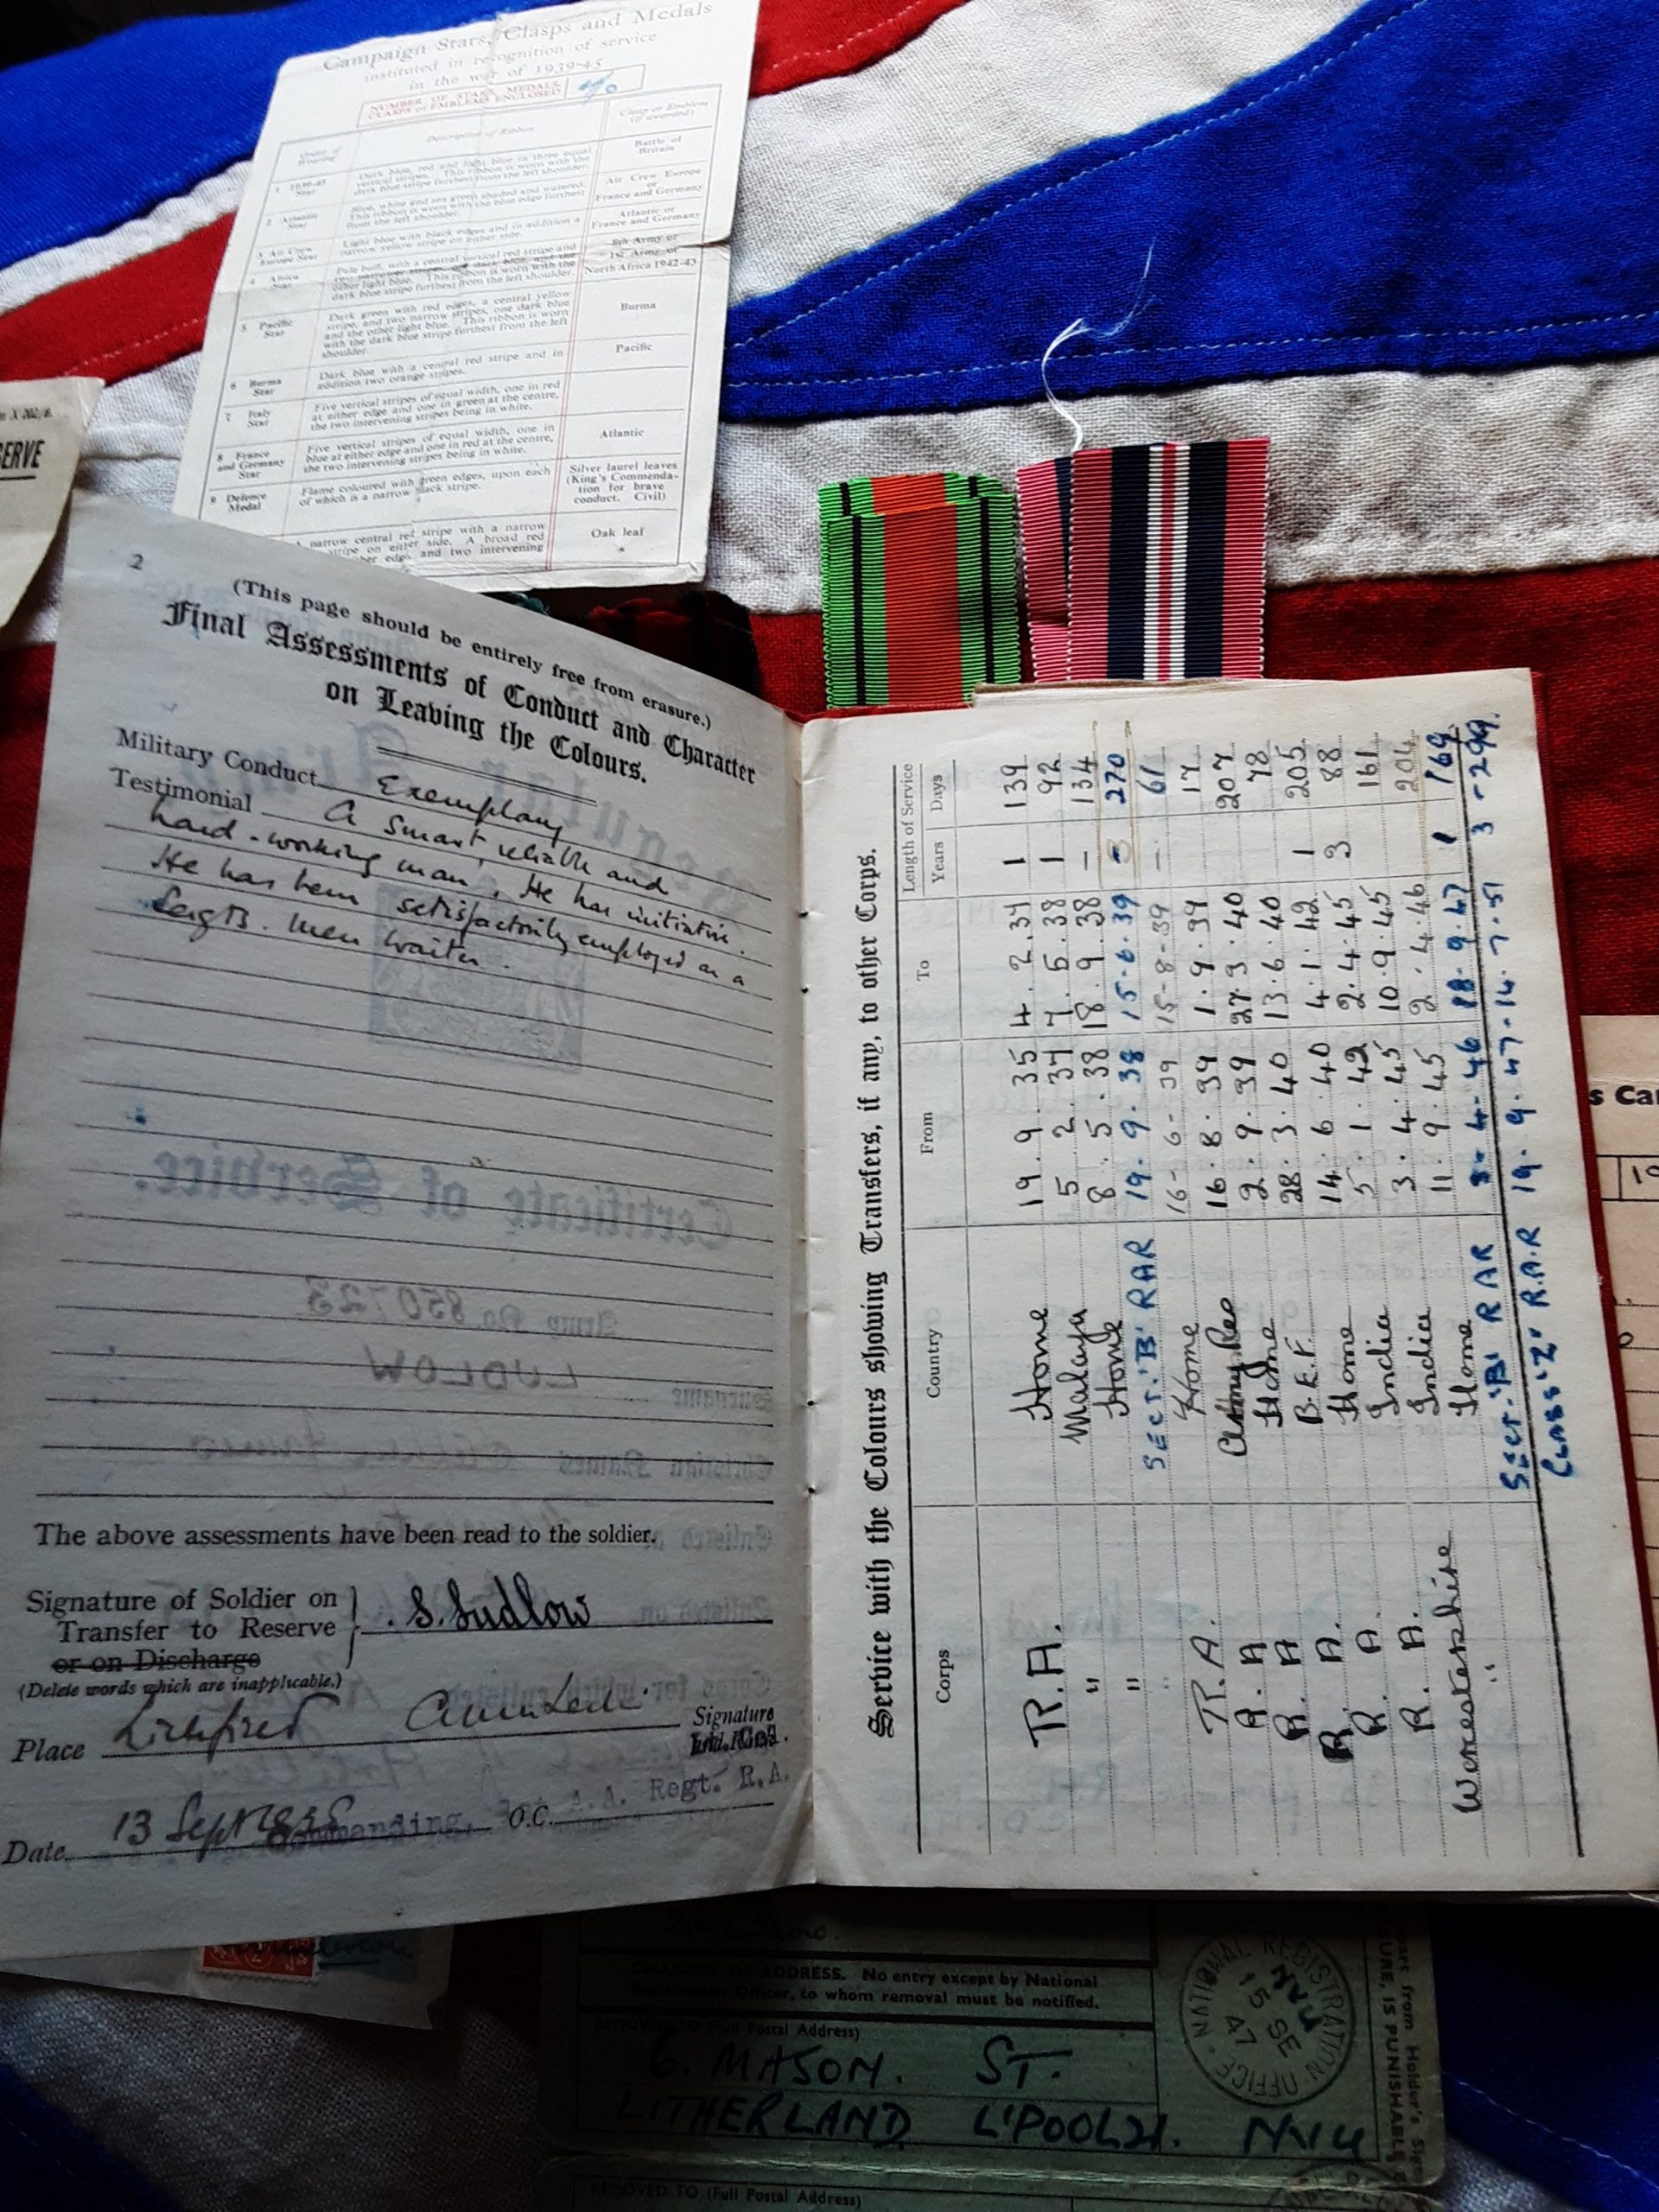 Campaign Stars, Clasps and Medals
instituted in recognition of service
in the war of 1939-45
NUMBER OF STARS, MEDALS,
CLASPS or EMBLEMS ENCLOSED
Order of Wearing
Description of Ribbon
Clasp or Emblem (if awarded)
1 1939-45 Star
Dark blue, red and light blue in three equal
vertical stripes. This ribbon is worn with the
dark blue stripe furthest from the left shoulder.
Battle of Britain
2 Atlantic Star
Blue, white and sea green shaded and watered.
This ribbon is worn with the blue edge furthest
from the left shoulder.
Air Crew Europe or France and Germany
3 Air Crew Europe Star
Light blue with black edges and in addition a
narrow yellow stripe on either side.
Atlantic or France and Germany
4 Africa Star
Pale buff, with a central vertical red stripe and
two narrower stripes, one dark blue, and the
other light blue. This ribbon is worn with the
dark blue stripe furthest from the left shoulder.
8th Army or 1st Army or North Africa 1942-43
5 Pacific Star
Dark green with red edges, a central yellow
stripe, and two narrow stripes, one dark blue
and the other light blue. This ribbon is worn
with the dark blue stripe furthest from the left
shoulder.
Burma
6 Burma Star
Dark blue with a central red stripe and in
addition two orange stripes.
Pacific
7 Italy Star
Five vertical stripes of equal width, one in red
at either edge and one in green at the centre,
the two intervening stripes being in white.
8 France and Germany Star
Five vertical stripes of equal width, one in
blue at either edge and one in red at the centre,
the two intervening stripes being in white.
Atlantic
9 Defence Medal
Flame coloured with green edges, upon each
of which is a narrow black stripe.
Silver laurel leaves (King's Commendation for brave conduct. Civil)
narrow central red stripe with a narrow
stripe on either side. A broad red
edge, and two intervening
Oak leaf
X 202/8.
ERVE
2
(This page should be entirely free from erasure.)
Final Assessments of Conduct and Character
on Leaving the Colours.
Military Conduct Exemplary
Testimonial A smart, reliable and
hard-working man. He has initiative.
He has been satisfactorily employed as a
Sergts. Mess Waiter.
The above assessments have been read to the soldier.
Signature of Soldier on
Transfer to Reserve
or on Discharge
S. Ludlow
(Delete words which are inapplicable.)
Place Lichfield
Signature
Date 13 Sept 1938
Commanding, A.A. Regt. R.A.
O.C.
Service with the Colours showing Transfers, if any, to other Corps.
Corps Country From To Length of Service
Years Days
R.A. Home 19.9.35 4.2.37 1 139
" Malaya 5.2.37 7.5.38 1 92
" Home 8.5.38 18.9.38 — 134
" SECT. 'B' RAR 19.9.38 15.6.39 - 270
R.A. Home 16-6-39 15-8-39 — 61
R.A. Army Res 16.8.39 1.9.39 17
R.A. Home 2.9.39 27.3.40 207
R.A. B.E.F. 28.3.40 13.6.40 78
R.A. Home 14.6.40 4.1.42 1 205
R.A. India 5.1.42 2.4.45 3 88
India 3.4.45 10.9.45 161
Worcestershire Home 11.9.45 2.4.46 204
" SECT. 'B' RAR 3-4-46 18.9.47 1 169
CLASS 'Z' R.A.R 19.9.47-14.7.51 3-299.
CHANGES OF ADDRESS. No entry except by National
Registration Officer, to whom removal must be notified.
REMOVED TO (Full Postal Address)
6. MASON. ST.
LITHERLAND L'POOL21. NVIU
NATIONAL REGISTRATION OFFICE
15 SE 47
NVIU
REMOVED TO (Full Postal Address)